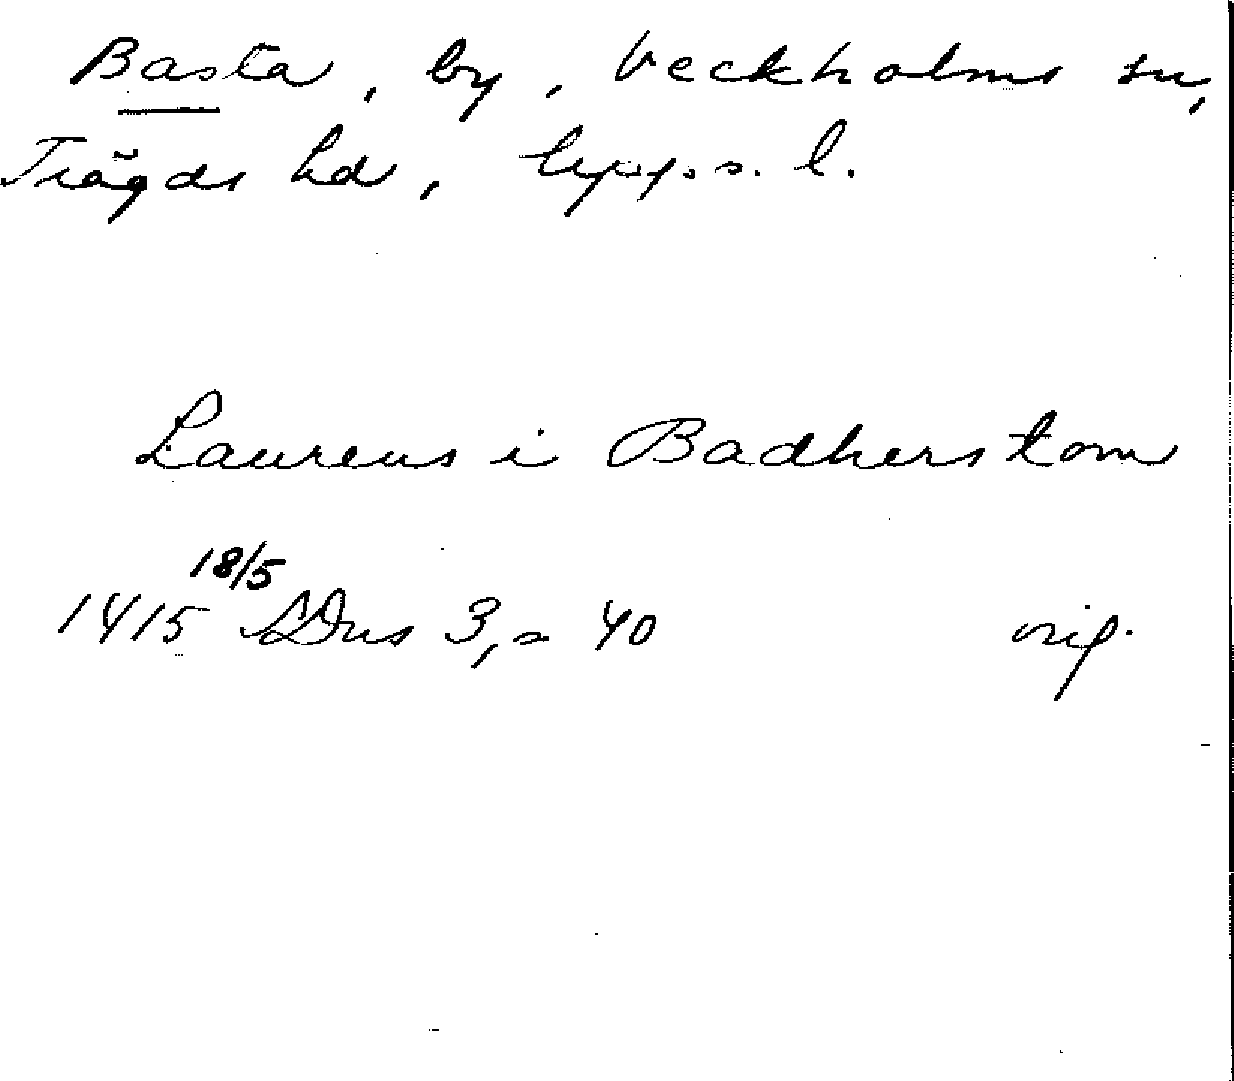 Basta, by, Veckholms sn,
Trögds hd, Upps. l.
Laurens i Badherstom
18/5
1415 SDns 3, s 40 orig.